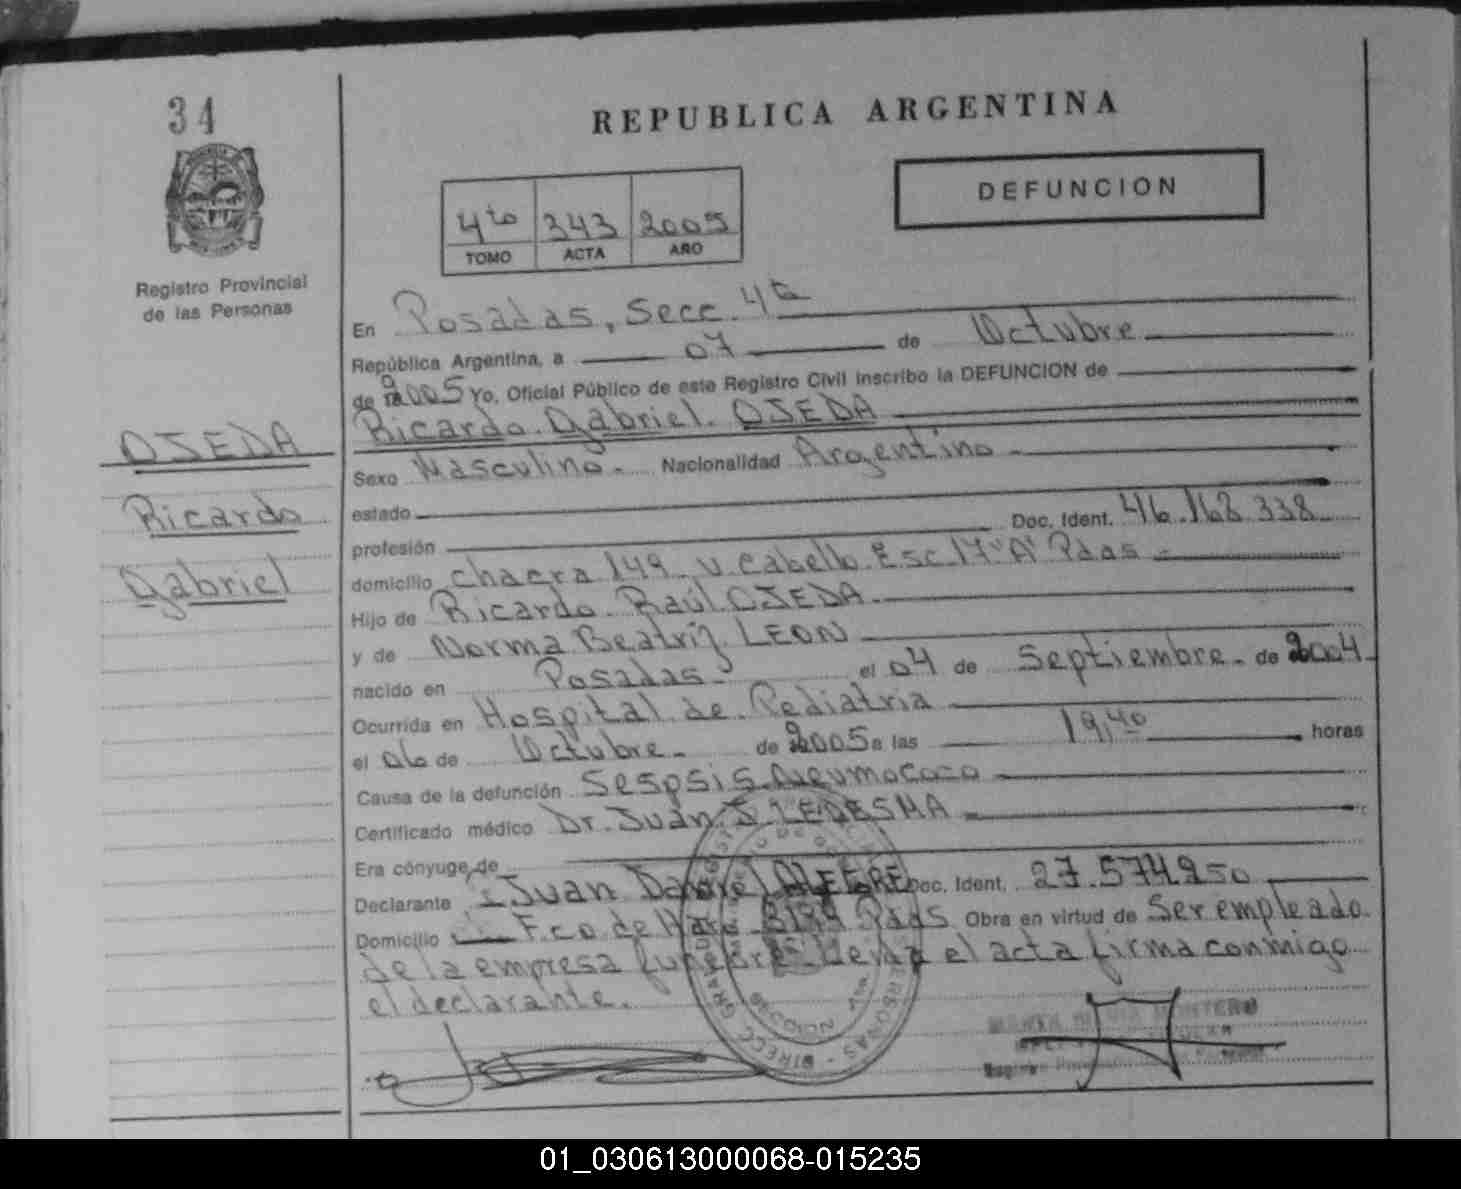 34
REPUBLICA ARGENTINA
DEFUNCION
4to 343 2005
TOMO ACTA AÑO
Registro Provincial
de las Personas
En Posadas, Secc. 4ta
República Argentina, a 07 de Octubre
de 2005 Yo, Oficial Público de este Registro Civil inscribo la DEFUNCION de
OJEDA
Ricardo Gabriel OJEDA
Sexo Masculino. Nacionalidad Argentino
Ricardo
estado
Doc. Ident. 46.168.338
profesión
Gabriel
domicilio Chacra 149 V. Cabello Esc. 17 "A" Pdas
Hijo de Ricardo Raúl OJEDA
y de Norma Beatriz LEON
nacido en Posadas el 04 de Septiembre de 2004
Ocurrida en Hospital de Pediatria
el 06 de Octubre de 2005 a las 19,40 horas
Causa de la defunción Sespsis Neumococo
Certificado médico Dr. Juan J. LEDESMA
Era cónyuge de
Declarante Juan Daniel ALEGRE Doc. Ident. 27.574.250
Domicilio Fco de Haro Pdas Obra en virtud de Ser empleado
de la empresa funebre. Leida el acta firma conmigo
el declarante.
MONTERO
01_030613000068-015235